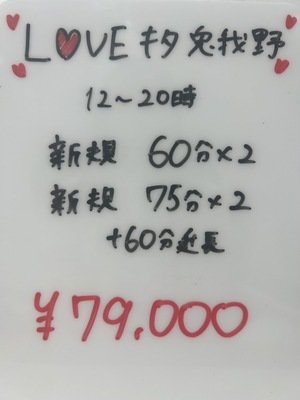 LOVE キタ兎我野
12～20時
新規 60分×2
新規 75分×2
+60分延長
¥79,000